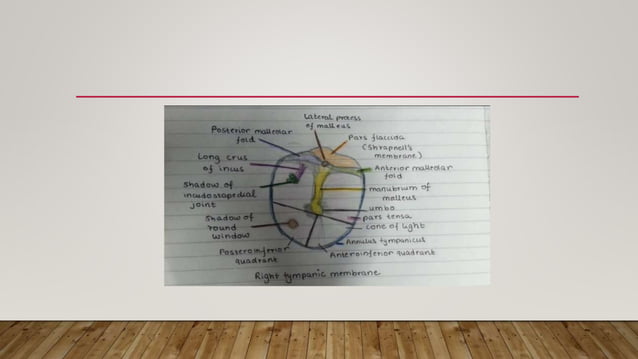 Lateral process
of malleus
Posterior malleolar
fold
Pars flaccida
(Shrapnell's
membrane)
Long crus
of incus
Anterior malleolar
fold
Shadow of
incudostapedial
joint
manubrium of
malleus
umbo
pars tensa
cone of light
Shadow of
round
window
Annulus tympanicus
Posteroinferior
quadrant
Anteroinferior quadrant
Right tympanic membrane